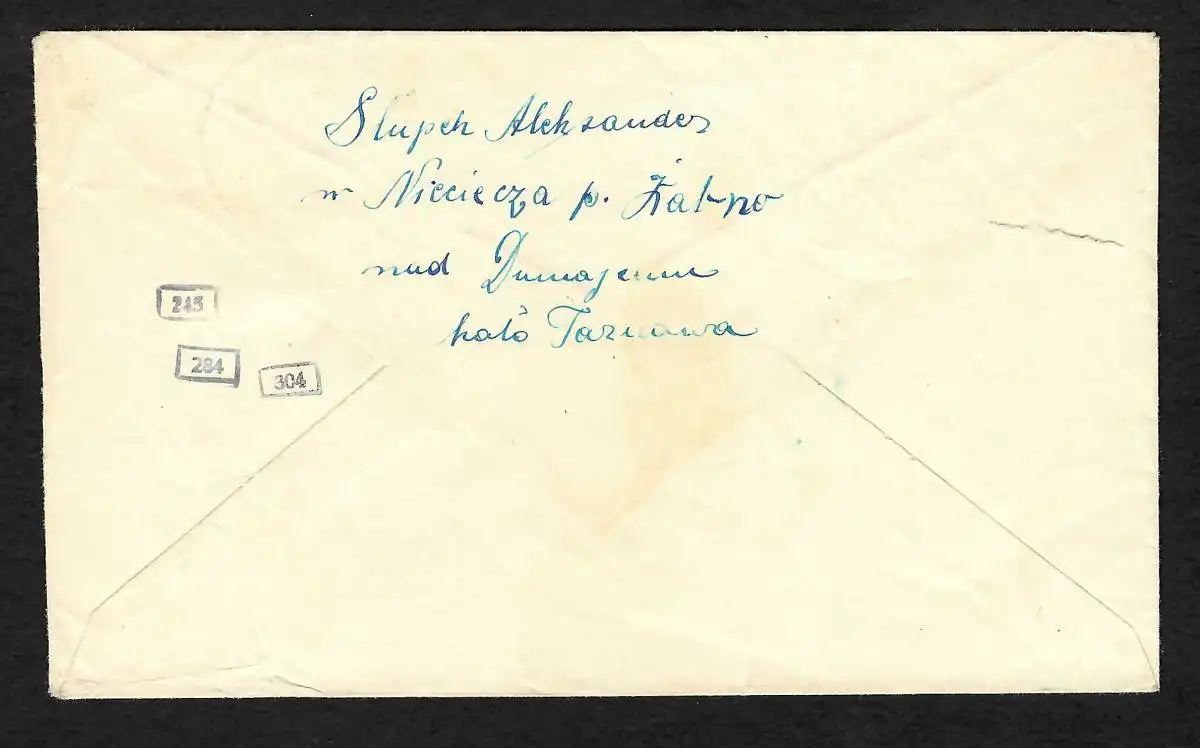 Słupek Aleksander
w Nieciecza p. Żabno
nad Dunajcem
koło Tarnowa
245
284
304